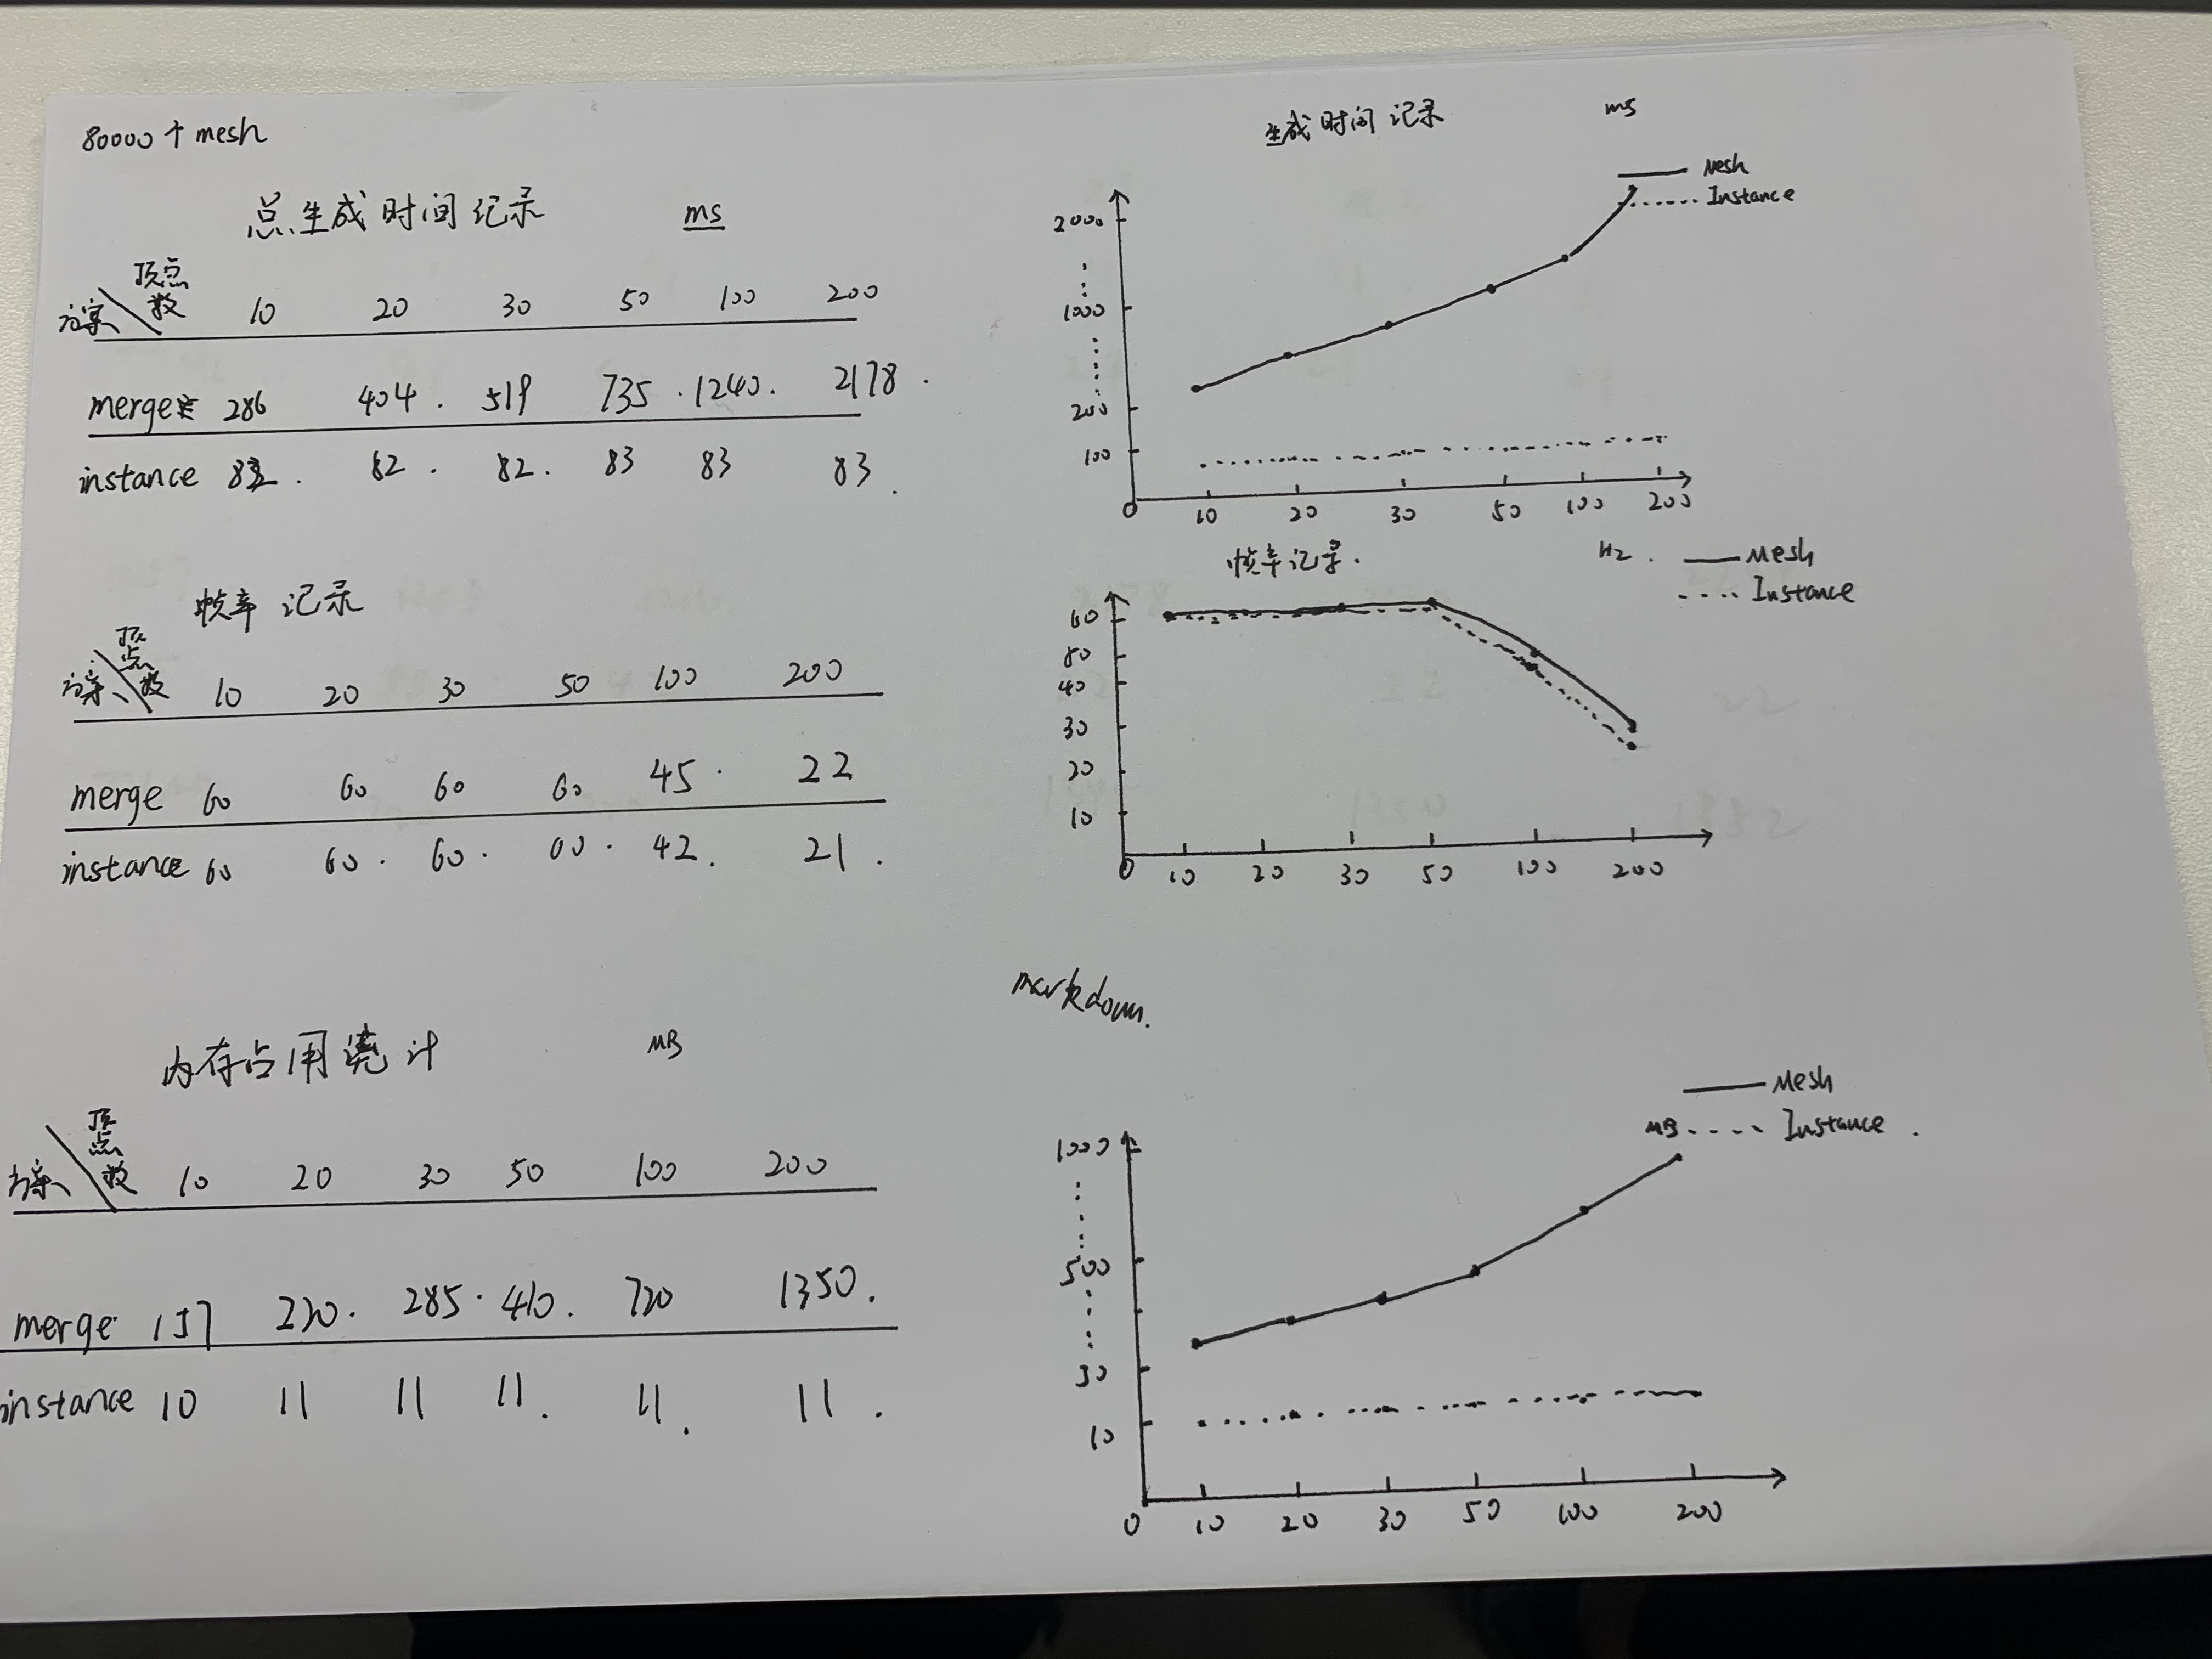 80000个mesh
总生成时间记录 ms
方案 顶点数 10 20 30 50 100 200
merge 286 404. 519 735. 1240. 2178.
instance 82. 82. 82. 83 83 83.
帧率记录
方案 顶点数 10 20 30 50 100 200
merge 60 60 60 60 45. 22
instance 60 60. 60. 60. 42. 21.
内存占用统计 MB
方案 顶点数 10 20 30 50 100 200
merge 157 220. 285. 410. 720 1350.
instance 10 11 11 11. 11. 11.
生成时间记录 ms
Mesh
Instance
2000
1000
200
100
0 10 20 30 50 100 200
帧率记录. Hz.
Mesh
Instance
60
80
40
30
20
10
0 10 20 30 50 100 200
markdown.
Mesh
MB Instance.
1000
500
30
10
0 10 20 30 50 100 200